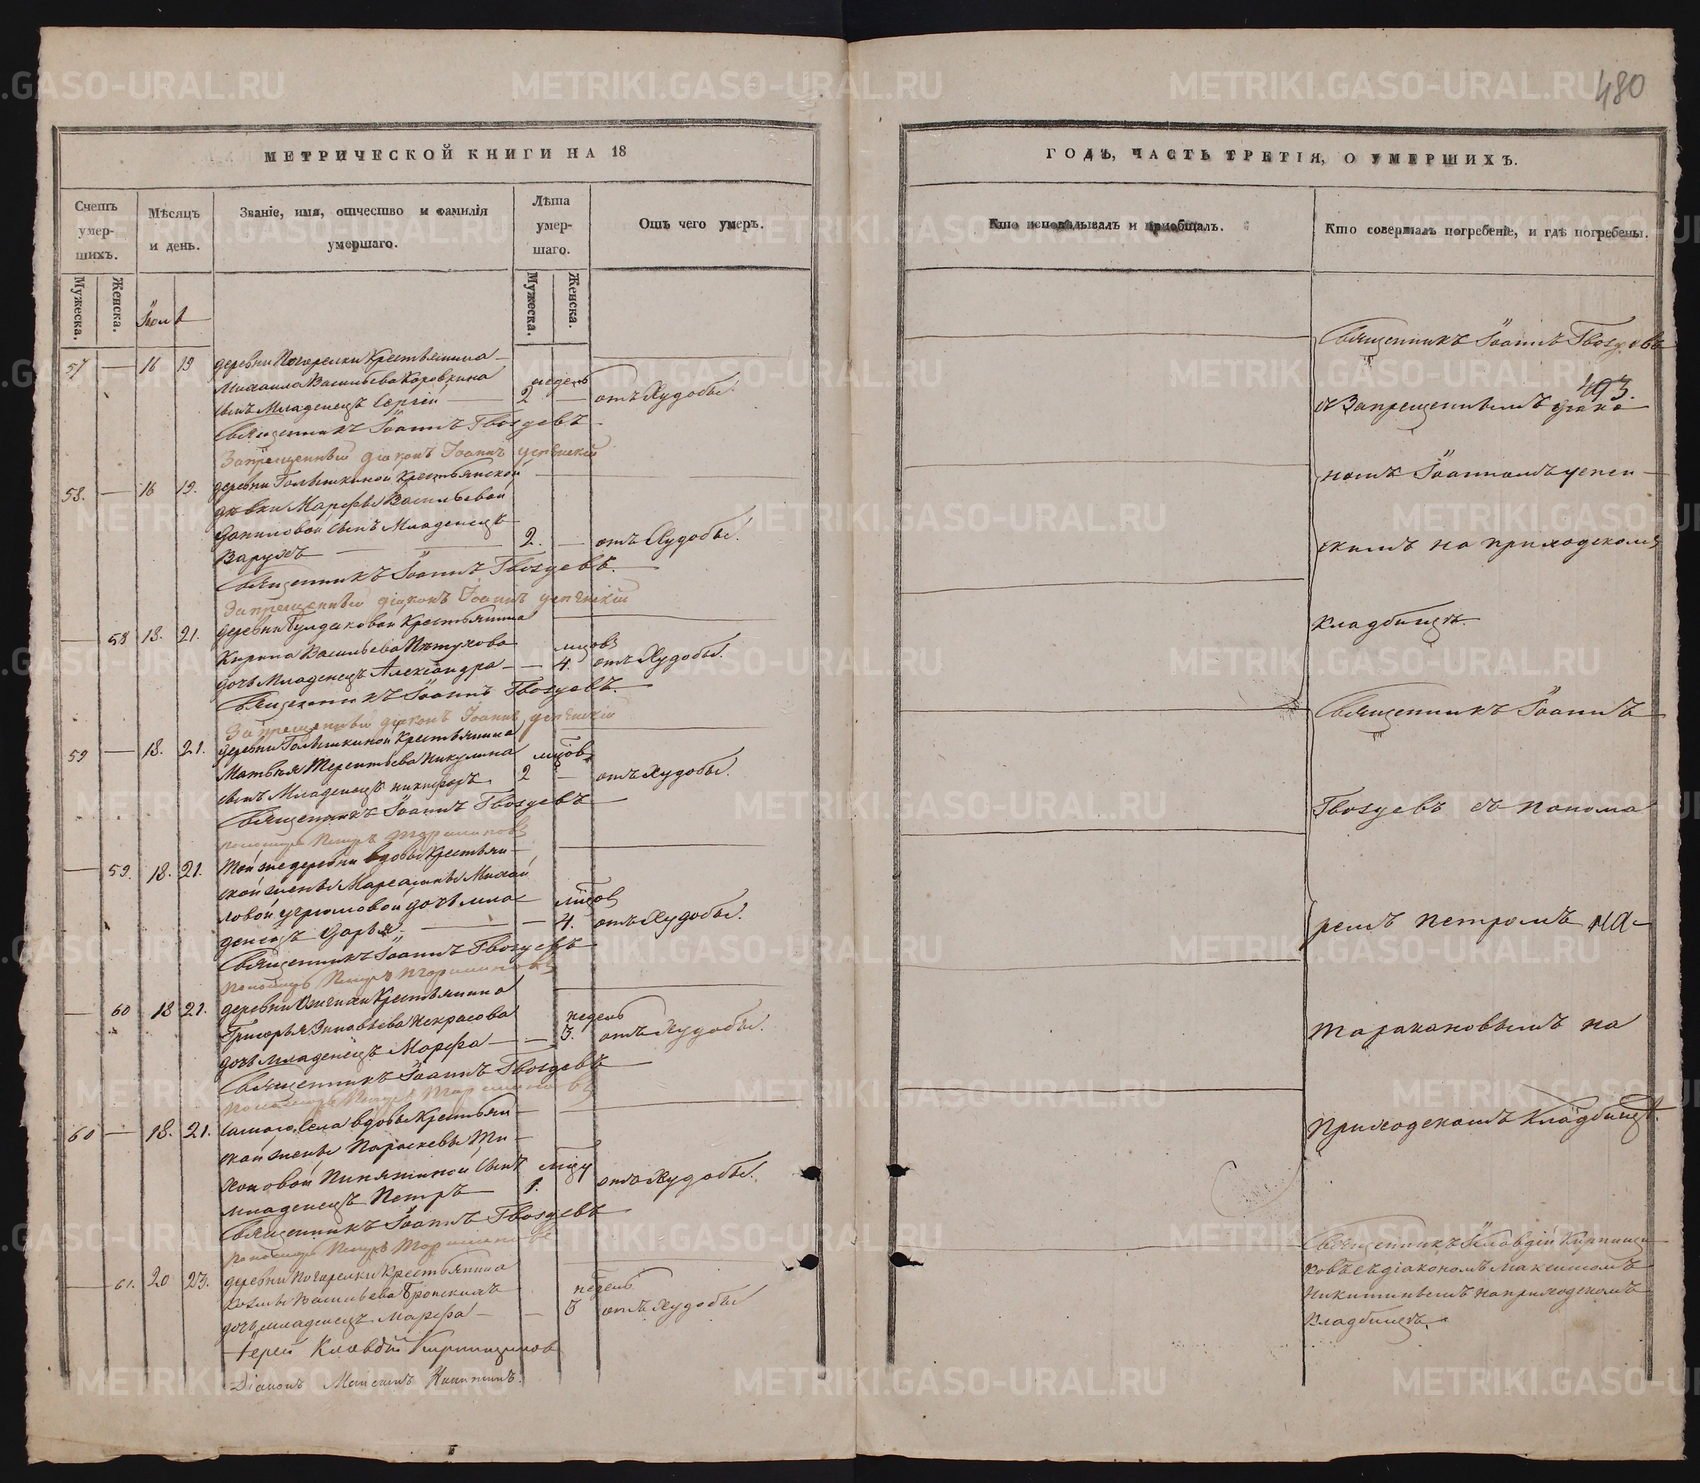 480
МЕТРИЧЕСКОЙ КНИГИ НА 18
ГОДЪ, ЧАСТЬ ТРЕТІЯ, О УМЕРШИХЪ.
Счетъ умер-шихъ.
Мѣсяцъ и день.
Званіе, имя, отчество и фамилія умершаго.
Лѣта умер-шаго.
Отъ чего умеръ.
Кто исповѣдывалъ и пріобщалъ.
Кто совершалъ погребеніе, и гдѣ погребены.
Мужеска.
Женска.
Мужеска.
Женска.
57 — 16 19 деревни Погорелки Крестьянина
Михаила Васильева Коровкина недель
сынъ Младенецъ Сергій 2 — отъ Худобы.
Священникъ Іоаннъ Гвоздевъ
Запрещенный діаконъ Іоаннъ Успенскій
58. — 16 19. деревни Голышкиной Крестьянской
девки Марфы Васильевой
Даниловой сынъ Младенецъ
Варухъ 2. — отъ Худобы.
Священникъ Іоаннъ Гвоздевъ.
Запрещенный діаконъ Іоаннъ Успенскій
— 58 18. 21. деревни Крестьянина
Кирила Васильева Петухова мцовъ
дочь Младенецъ Александра — 4. отъ Худобы.
Священникъ Іоаннъ Гвоздевъ.
Запрещенный діаконъ Іоаннъ Успенскій
59 — 18. 21. деревни Голышкиной Крестьянина
Матвея Терентьева Никулина мцовъ
сынъ Младенецъ Никифоръ 2 — отъ Худобы.
Священникъ Іоаннъ Гвоздевъ
пономарь Петръ Таракановъ
— 59. 18. 21. Той же деревни вдовы Крестьян-
ской жены Михай
ловой Угрюмовой дочь мла- мцовъ
денецъ Дарья — 4. отъ Худобы.
Священникъ Іоаннъ Гвоздевъ
пономарь Петръ Таракановъ
— 60 18 21. деревни Крестьянина
Григорья Зиновьева Некрасова недель
дочь младенецъ Марфа — 3. отъ Худобы.
Священникъ Іоаннъ Гвоздевъ
пономарь Петръ Таракановъ
60 — 18. 21. самаго села вдовы Крестьян-
ской жены Параскевы Ти-
хоновой сынъ мцу
младенецъ Петръ 1. отъ Худобы.
Священникъ Іоаннъ Гвоздевъ
пономарь Петръ Таракановъ
— 61. 20 23. деревни Погорелки Крестьянина
Козьмы Васильева недель
дочь младенецъ Марфа — 3 отъ Худобы
Іерей Клавдій Кирпищиковъ
Діаконъ Максимъ Никитинъ.
Священникъ Іоаннъ Гвоздевъ
493.
съ Запрещеннымъ діако
номъ Іоанномъ Успен-
скимъ на приходскомъ
кладбищѣ.
Священникъ Іоаннъ
Гвоздевъ съ понома
ремъ Петромъ
Таракановымъ на
Приходскомъ Кладбищѣ.
Священникъ Клавдій Кирпищи-
ковъ съ діакономъ Максимомъ
Никитинымъ на приходскомъ
Кладбищѣ.